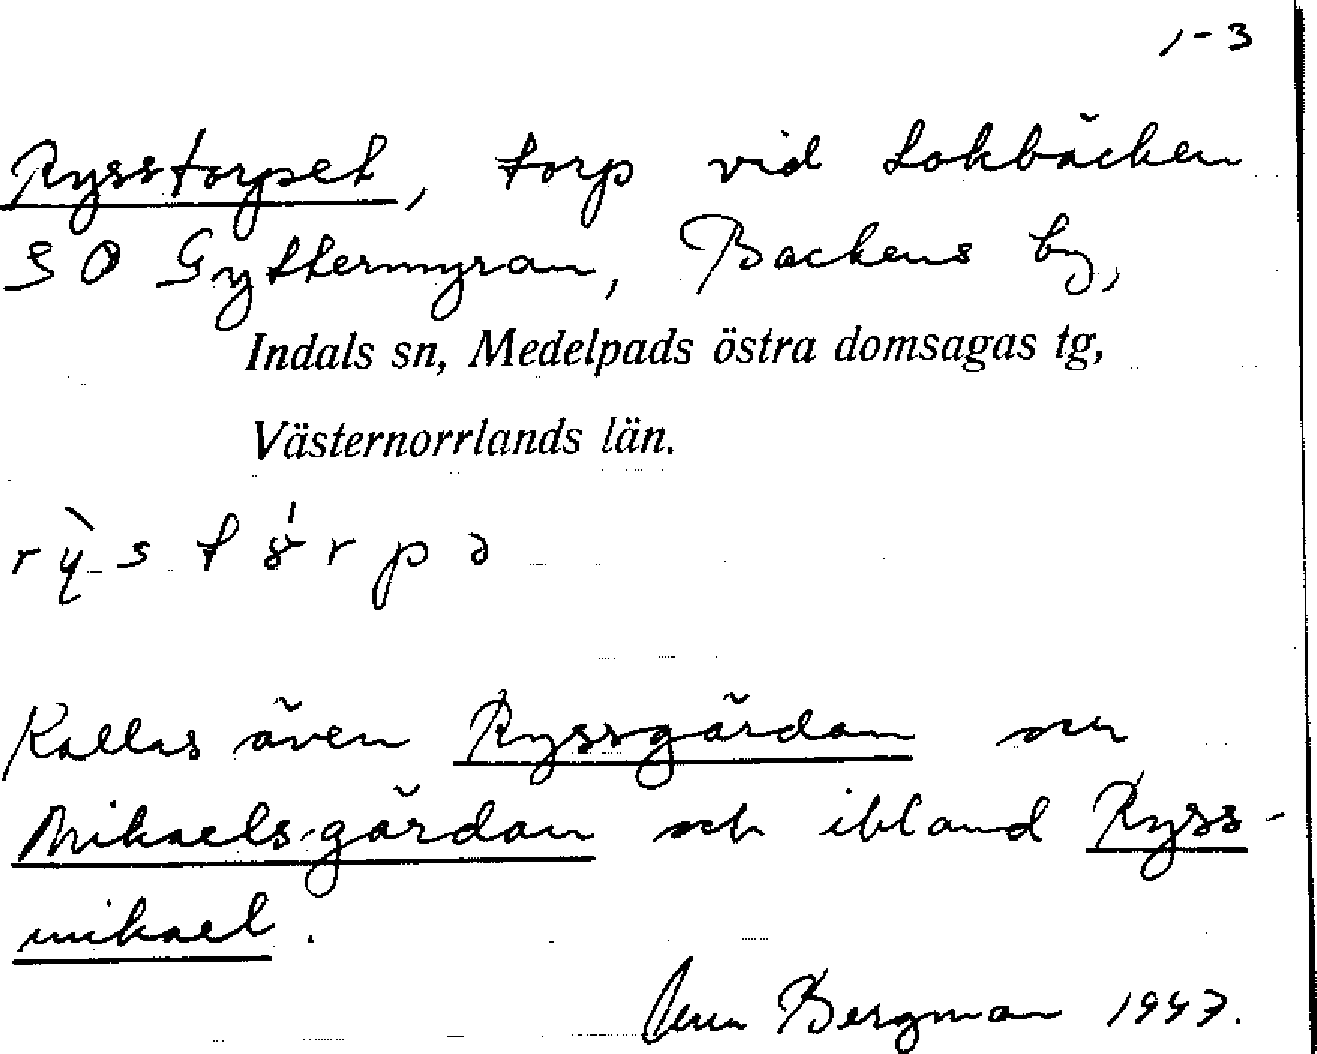 1-3
Rysstorpet, torp vid Lokbäcken
SO Gyttermyran, Backens by,
Indals sn, Medelpads östra domsagas tg,
Västernorrlands län.
Kallas även Ryssgårdan och
Mikaelsgårdan och ibland Ryss-
mikael.
Bergman 1947.